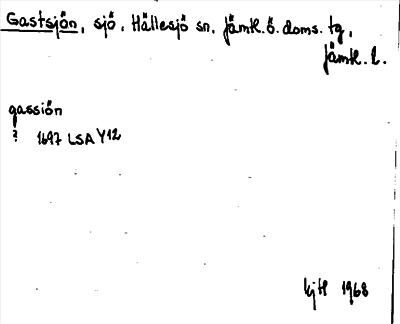 Gastsjön, sjö, Hällesjö sn, Jämtl. ö. doms. tg,
Jämtl. l.
gassiön
? 1697 LSA Y12
1968